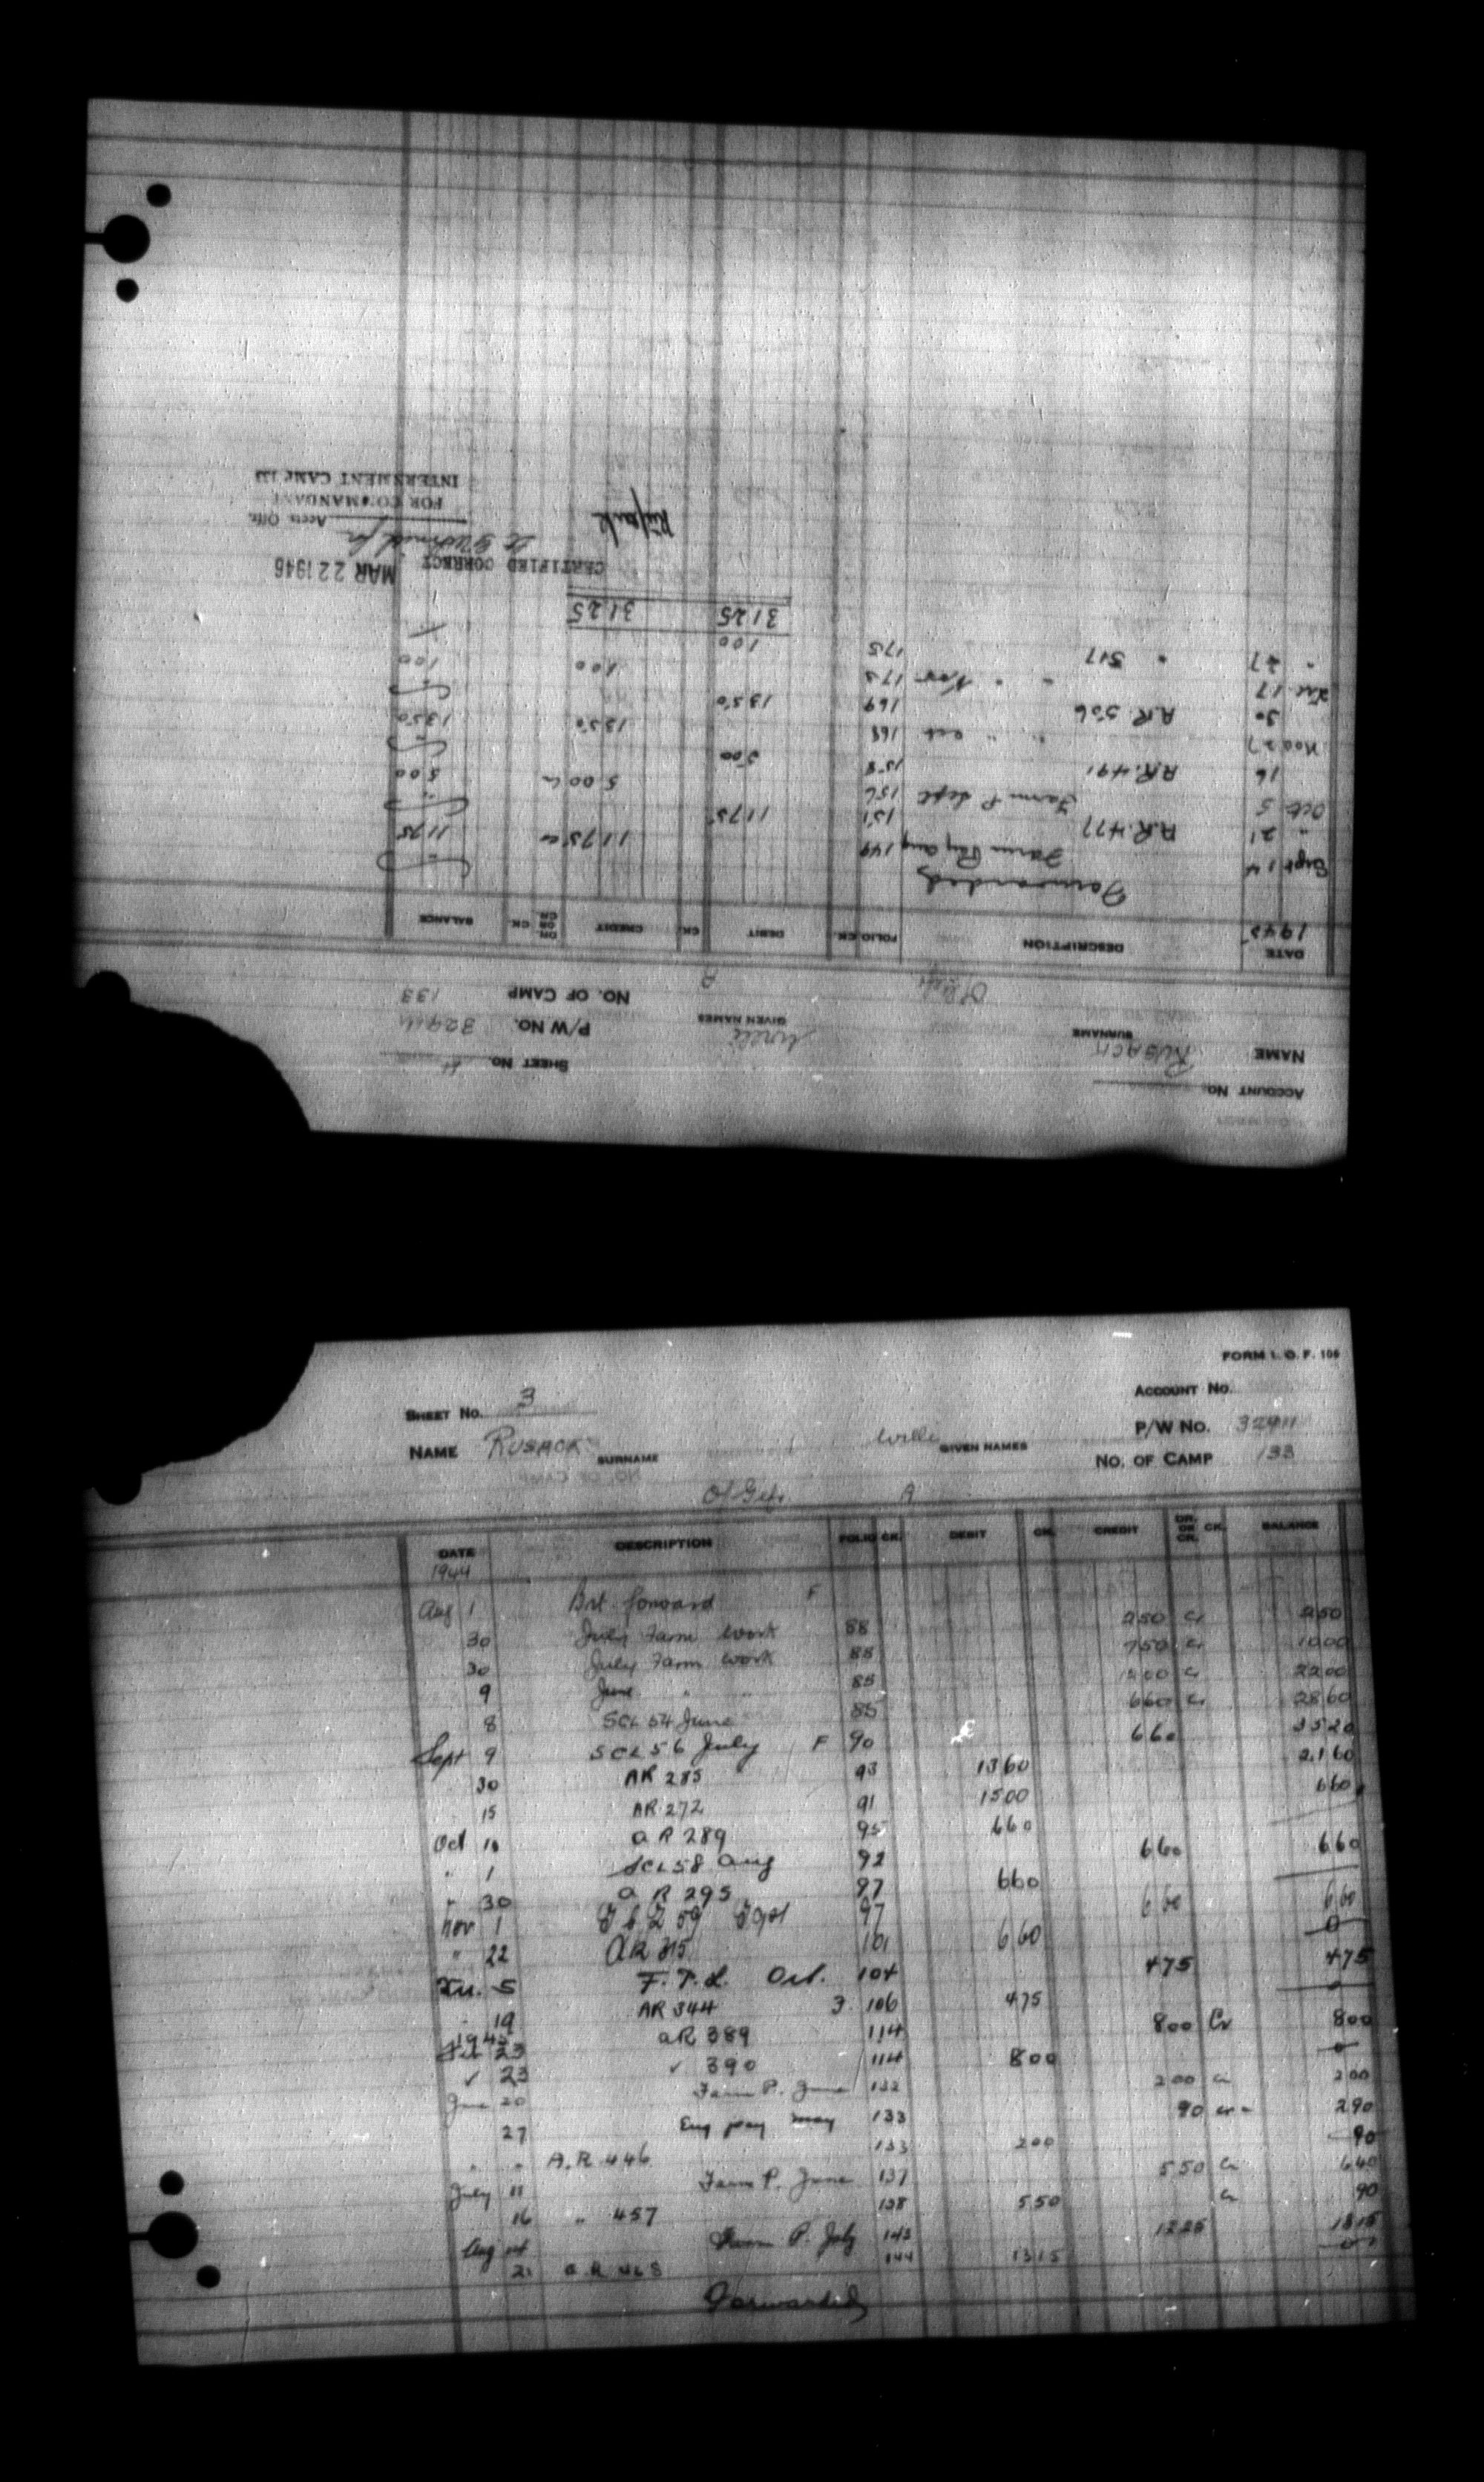 ACCOUNT No.
NAME RUSACK SURNAME Willi GIVEN NAMES
SHEET No. 4
P/W No.
NO. OF CAMP 133
A
DATE DESCRIPTION FOLIO CK. DEBIT CK. CREDIT DR. OR CR. CK. BALANCE
1945
Forwarded
Sept 14 Farm Pay Aug 149 1175 Cr 1175
" 21 A.R. 477 151 1175
Oct 5 Farm P. Sept 156 500 Cr 500
16 A.R. 491 158 500
Nov 27 " " Oct 168 1350 1350
30 A.R. 506 169 1350
17 " " Nov 173 100 100
" 27 " 517 175 100
3125 3125
CERTIFIED CORRECT MAR 22 1946
Accts Offr.
FOR COMMANDANT
INTERNMENT CAMP 133
FORM I. O. F. 106
SHEET No. 3
ACCOUNT No.
NAME RUSACK SURNAME Willi GIVEN NAMES
P/W No. 32911
NO. OF CAMP 133
O/Gefr. A
DATE DESCRIPTION FOLIO CK. DEBIT CK. CREDIT DR. OR CR. CK. BALANCE
1944
Aug 1 Brt. forward F
30 July Farm Work 88 250 Cr 250
30 July Farm Work 88 750 Cr 1000
9 June " " 85 1200 Cr 2200
8 SCL 54 June 85 660 Cr 2860
Sept 9 SCL 56 July F 90 660 3520
30 AR 285 93 1360 2160
15 AR 272 91 1500 660
Oct 10 AR 289 95 660
" 1 SCL 58 Aug 92 660 660
" 30 A R 295 97 660
Nov 1 59 Sept 97 660 660
" 22 AR 315 101 660 0
5 F.P.L. Oct. 104 475 475
19 AR 344 3 106 475 0
1945
23 AR 389 114 800 Cr 800
✓ 23 ✓ 390 114 800 0
June 20 Farm P. June 132 200 Cr 200
27 Eng pay may 133 90 Cr 290
" " A.R 446 133 200 90
July 11 Farm P. June 137 550 Cr 640
16 " 457 138 550 Cr 90
Aug 14 Farm P. July 143 1225 1315
21 A.R. 468 144 1315 0
Forwarded